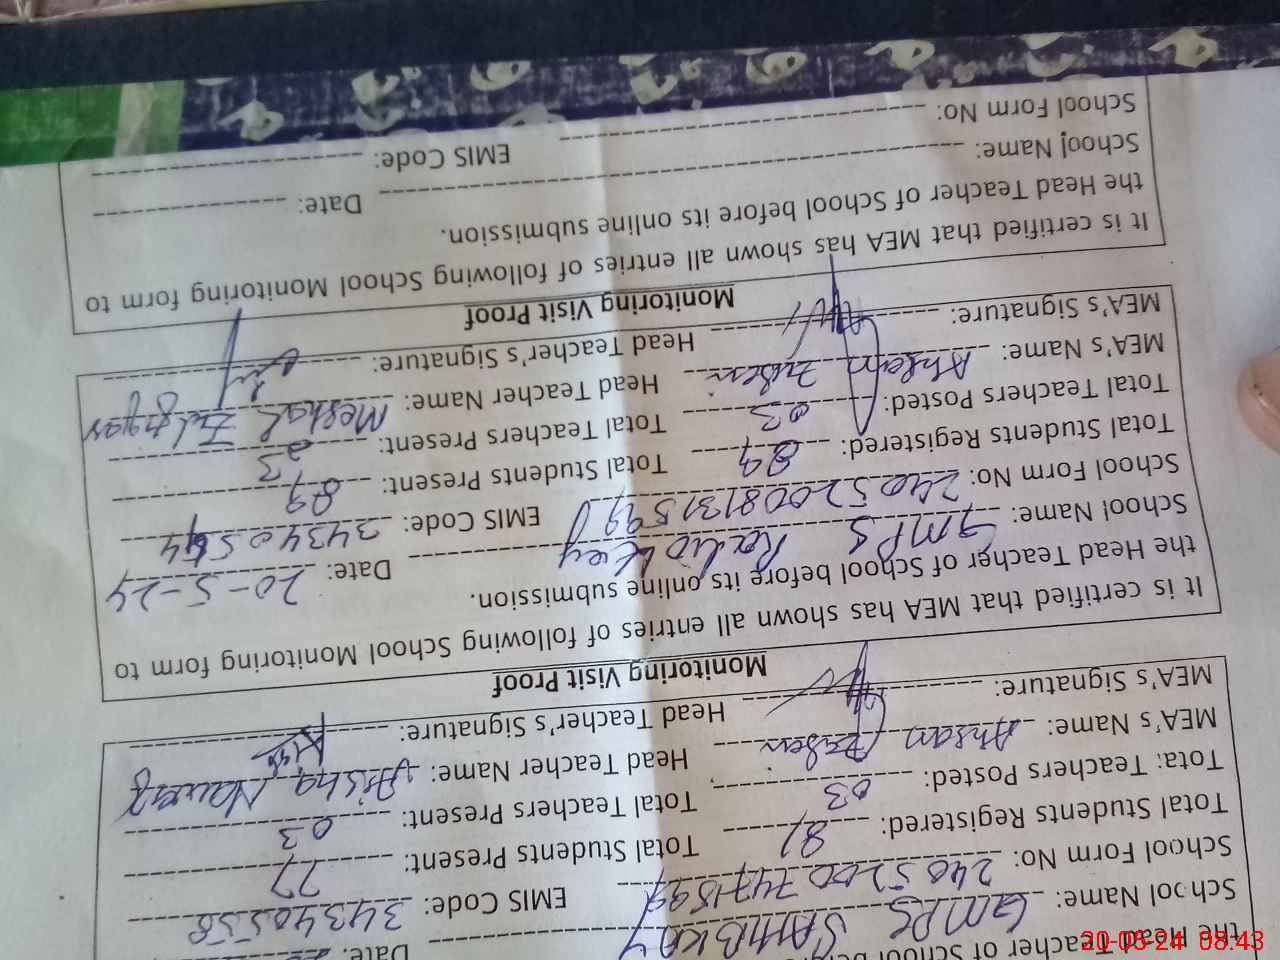 the Head Teacher of School
School Name: GMPS Date:
School Form No: EMIS Code: 34340558
Total Students Registered: 81 Total Students Present: 77
Total Teachers Posted: 03 Total Teachers Present: 03
MEA's Name: Ahsan Head Teacher Name:
MEA's Signature: Head Teacher's Signature:
Monitoring Visit Proof
It is certified that MEA has shown all entries of following School Monitoring form to
the Head Teacher of School before its online submission.
School Name: GMPS Date: 20-5-24
School Form No: EMIS Code:
Total Students Registered: 89 Total Students Present: 89
Total Teachers Posted: 03 Total Teachers Present: 03
MEA's Name: Ahsan Head Teacher Name:
MEA's Signature: Head Teacher's Signature:
Monitoring Visit Proof
It is certified that MEA has shown all entries of following School Monitoring form to
the Head Teacher of School before its online submission.
School Name: Date:
School Form No: EMIS Code:
20-05-24 08:43